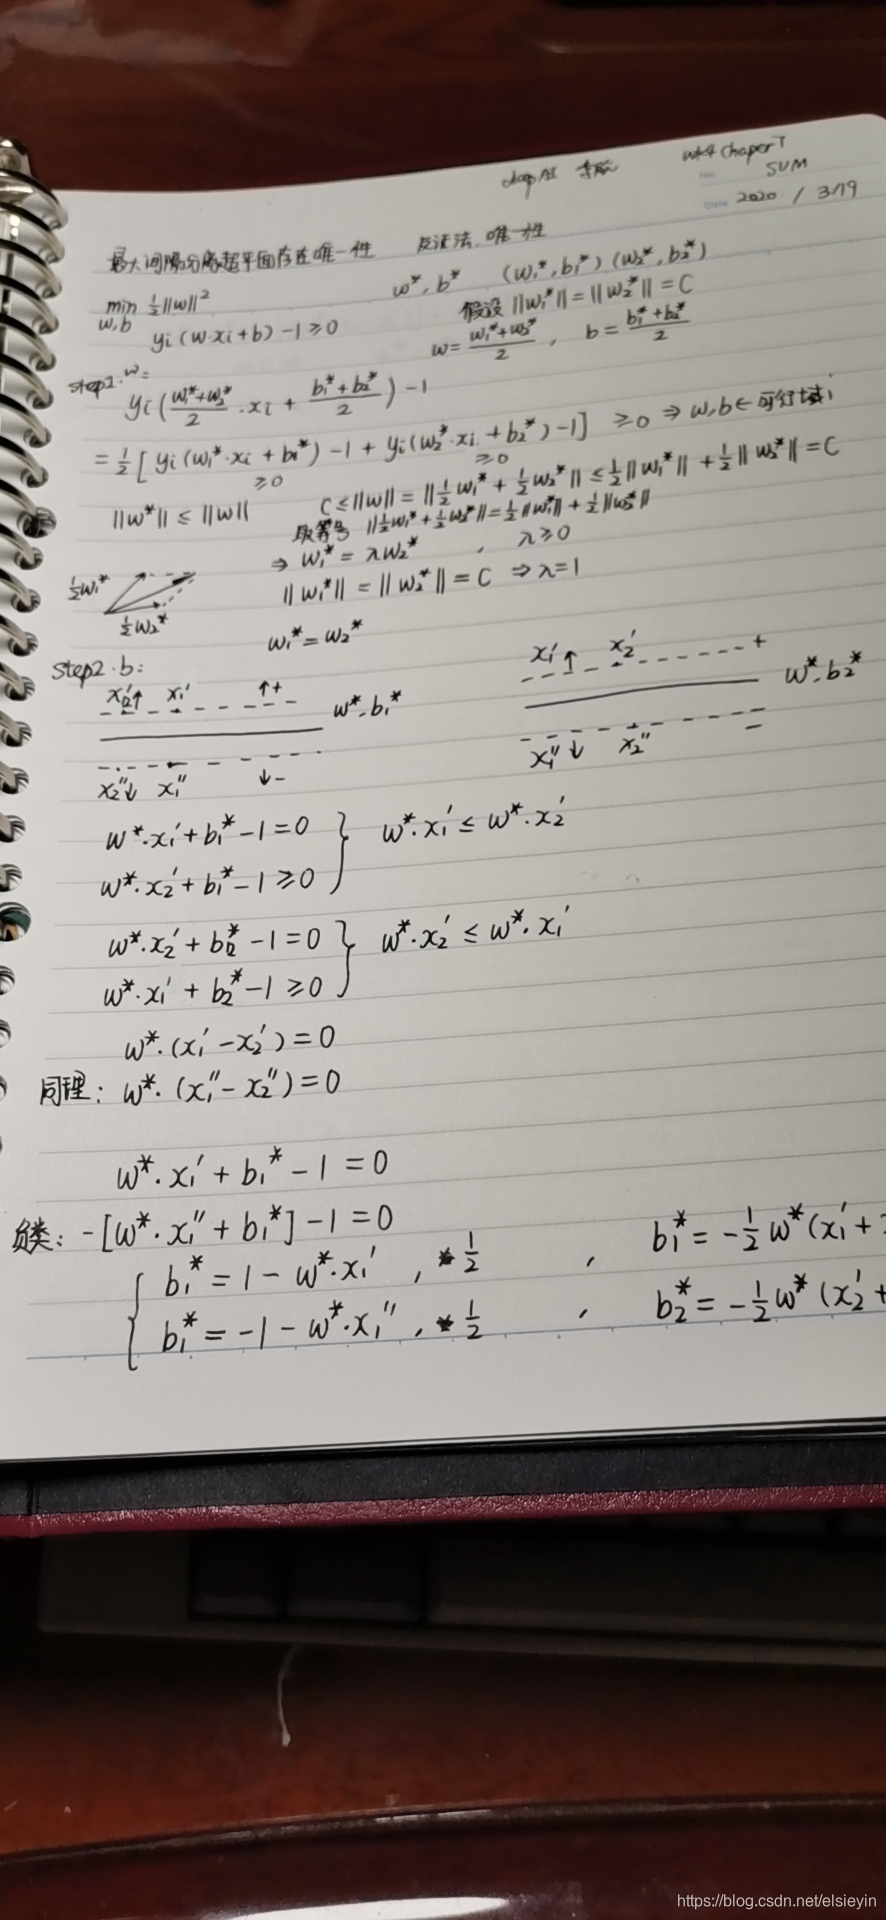 wk4 Chaper7
SVM
2020 / 3/19
最大间隔分离超平面存在唯一性 反证法.唯一性
w*, b* (w₁*, b₁*) (w₂*, b₂*)
min w,b ½||w||²
假设 ||w₁*|| = ||w₂*|| = C
yi (w·xi+b) -1 ≥0
w = (w₁*+w₂*)/2 , b = (b₁*+b₂*)/2
step1. w:
yi ( (w₁*+w₂*)/2 ·xi + (b₁*+b₂*)/2 ) -1
= ½ [ yi (w₁*·xi + b₁*) -1 + yi (w₂*·xi + b₂*) -1 ] ≥0 ⇒ w,b ∈ 可行域
≥0 ≥0
||w*|| ≤ ||w||
C ≤ ||w|| = ||½w₁* + ½w₂*|| ≤ ½||w₁*|| + ½||w₂*|| = C
取等号 ||½w₁* + ½w₂*|| = ½||w₁*|| + ½||w₂*||
⇒ w₁* = λw₂* , λ≥0
||w₁*|| = ||w₂*|| = C ⇒ λ=1
½w₁*
½w₂*
w₁* = w₂*
Step2. b:
x₂'↑ x₁' ↑+
w*.b₁*
x₂''↓ x₁'' ↓-
x₁'↑ x₂' +
w*.b₂*
x₁''↓ x₂'' -
w*·x₁' + b₁* -1 = 0 } w*·x₁' ≤ w*·x₂'
w*·x₂' + b₁* -1 ≥ 0
w*·x₂' + b₂* -1 = 0 } w*·x₂' ≤ w*·x₁'
w*·x₁' + b₂* -1 ≥ 0
w*·(x₁' - x₂') = 0
同理: w*·(x₁'' - x₂'') = 0
w*·x₁' + b₁* -1 = 0
负类: -[w*·x₁'' + b₁*] -1 = 0
{ b₁* = 1 - w*·x₁' , * ½ , b₁* = -½ w* (x₁' +
b₁* = -1 - w*·x₁'' , * ½ , b₂* = -½ w* (x₂' +
https://blog.csdn.net/elsieyin